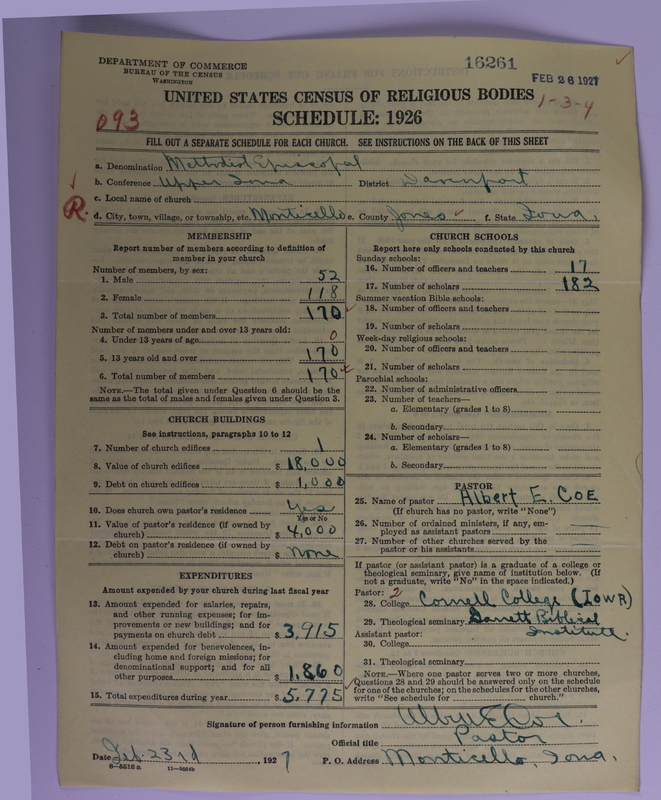 DEPARTMENT OF COMMERCE
BUREAU OF THE CENSUS
WASHINGTON
16261
FEB 26 1927
UNITED STATES CENSUS OF RELIGIOUS BODIES
1-3-4
093
SCHEDULE: 1926
FILL OUT A SEPARATE SCHEDULE FOR EACH CHURCH. SEE INSTRUCTIONS ON THE BACK OF THIS SHEET
a. Denomination Methodist Episcopal
b. Conference Upper Iowa District Davenport
c. Local name of church
R.
d. City, town, village, or township, etc. Monticello e. County Jones f. State Iowa.
MEMBERSHIP
Report number of members according to definition of
member in your church
Number of members, by sex:
1. Male 52
2. Female 118
3. Total number of members 170
Number of members under and over 13 years old:
4. Under 13 years of age 0
5. 13 years old and over 170
6. Total number of members 170
NOTE.—The total given under Question 6 should be
same as the total of males and females given under Question 3.
CHURCH BUILDINGS
See instructions, paragraphs 10 to 12
7. Number of church edifices 1
8. Value of church edifices $ 18,000
9. Debt on church edifices $ 1,000
10. Does church own pastor's residence Yes
Yes or No
11. Value of pastor's residence (if owned by
church) $ 4,000
12. Debt on pastor's residence (if owned by
church) $ None
EXPENDITURES
Amount expended by your church during last fiscal year
13. Amount expended for salaries, repairs,
and other running expenses; for im-
provements or new buildings; and for
payments on church debt $ 3,915
14. Amount expended for benevolences, in-
cluding home and foreign missions; for
denominational support; and for all
other purposes $ 1,860
15. Total expenditures during year $ 5,775
CHURCH SCHOOLS
Report here only schools conducted by this church
Sunday schools:
16. Number of officers and teachers 17
17. Number of scholars 182
Summer vacation Bible schools:
18. Number of officers and teachers
19. Number of scholars
Week-day religious schools:
20. Number of officers and teachers
21. Number of scholars
Parochial schools:
22. Number of administrative officers
23. Number of teachers—
a. Elementary (grades 1 to 8)
b. Secondary
24. Number of scholars—
a. Elementary (grades 1 to 8)
b. Secondary
PASTOR
25. Name of pastor Albert E. Coe
(If church has no pastor, write "None")
26. Number of ordained ministers, if any, em-
ployed as assistant pastors —
27. Number of other churches served by the
pastor or his assistants —
If pastor (or assistant pastor) is a graduate of a college or
theological seminary, give name of institution below. (If
not a graduate, write "No" in the space indicated.)
Pastor: 2
28. College Cornell College (Iowa)
29. Theological seminary Garrett Biblical
Institute.
Assistant pastor:
30. College
31. Theological seminary
NOTE.—Where one pastor serves two or more churches,
Questions 28 and 29 should be answered only on the schedule
for one of the churches; on the schedules for the other churches,
write "See schedule for church."
Signature of person furnishing information Albert E. Coe.
Official title Pastor
Date Feb. 23rd, 1927 P. O. Address Monticello, Iowa.